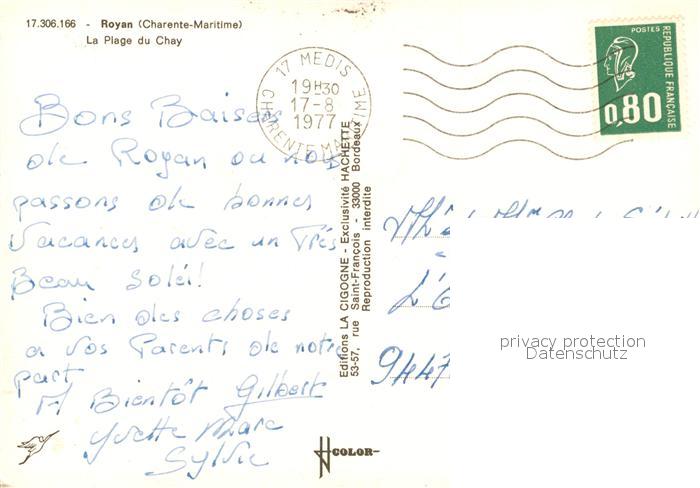 17.306.166 - Royan (Charente-Maritime)
La Plage du Chay
17 MEDIS
19H30
17-8
1977
CHARENTE MARITIME
POSTES
REPUBLIQUE FRANÇAISE
0,80
Bons Baisers
de Royan ou nous
passons de bonnes
Vacances avec un Très
Beau Soleil!
Bien des choses
a vos Parents de notre
part
A Bientôt Gilbert
Yvette Marc
Sylvie
Editions LA CIGOGNE - Exclusivité HACHETTE
53-57, rue Saint-François - 33000 Bordeaux
Reproduction interdite
privacy protection
Datenschutz
COLOR